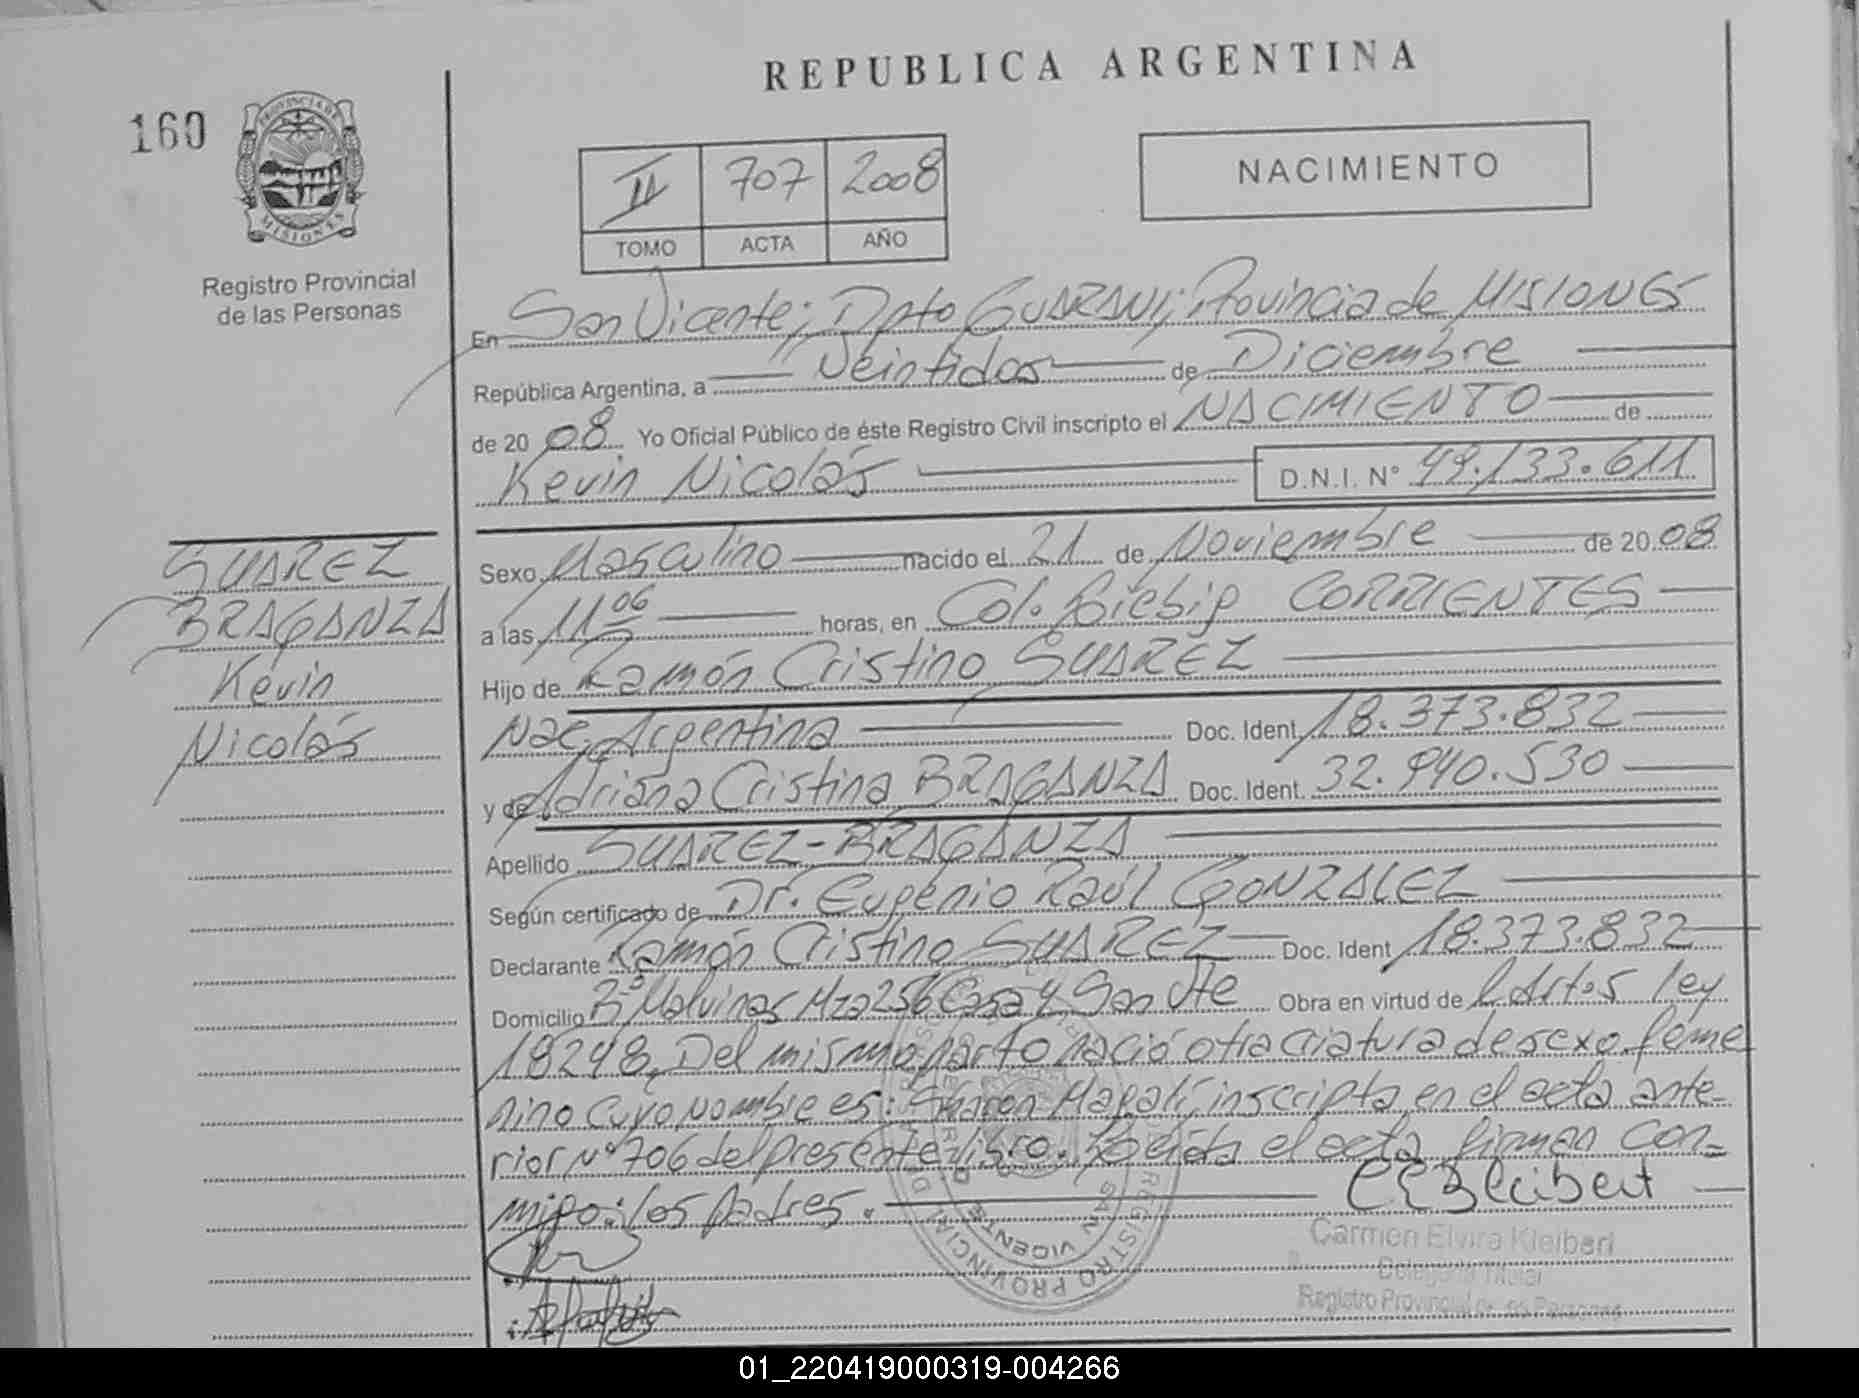 REPUBLICA ARGENTINA
160
PROVINCIA DE
MISIONES
Registro Provincial
de las Personas
II 707 2008
TOMO ACTA AÑO
NACIMIENTO
En San Vicente; Dpto GUARANI; Provincia de MISIONES
República Argentina, a Veintidos de Diciembre
de 2008 Yo Oficial Público de éste Registro Civil inscripto el NACIMIENTO de
Kevin Nicolás D.N.I. N° 49.133.611
SUAREZ
BRAGANZA
Kevin
Nicolás
Sexo Masculino nacido el 21 de Noviembre de 2008
a las 11 06 horas, en Col. CORRIENTES
Hijo de Ramón Cristino SUAREZ
Nac. Argentina Doc. Ident. 18.373.832
y de Adriana Cristina BRAGANZA Doc. Ident. 32.940.530
Apellido SUAREZ-BRAGANZA
Según certificado de Dr. Eugenio Raúl GONZALEZ
Declarante Ramón Cristino SUAREZ Doc. Ident 18.373.832
Domicilio B° Malvinas Mza 256 Casa 4 San Vte Obra en virtud de Art. 5 ley
18248. Del mismo parto nació otra criatura de sexo feme
nino cuyo nombre es: Sharon Magalí, inscripta en el acta ante-
rior N° 706 del presente libro. el acta firman con-
migo: los padres.
Carmen Elvira Kleibert
Delegada Titular
Registro Provincial de las Personas
REGISTRO PROVINCIAL
SAN VICENTE
01_220419000319-004266